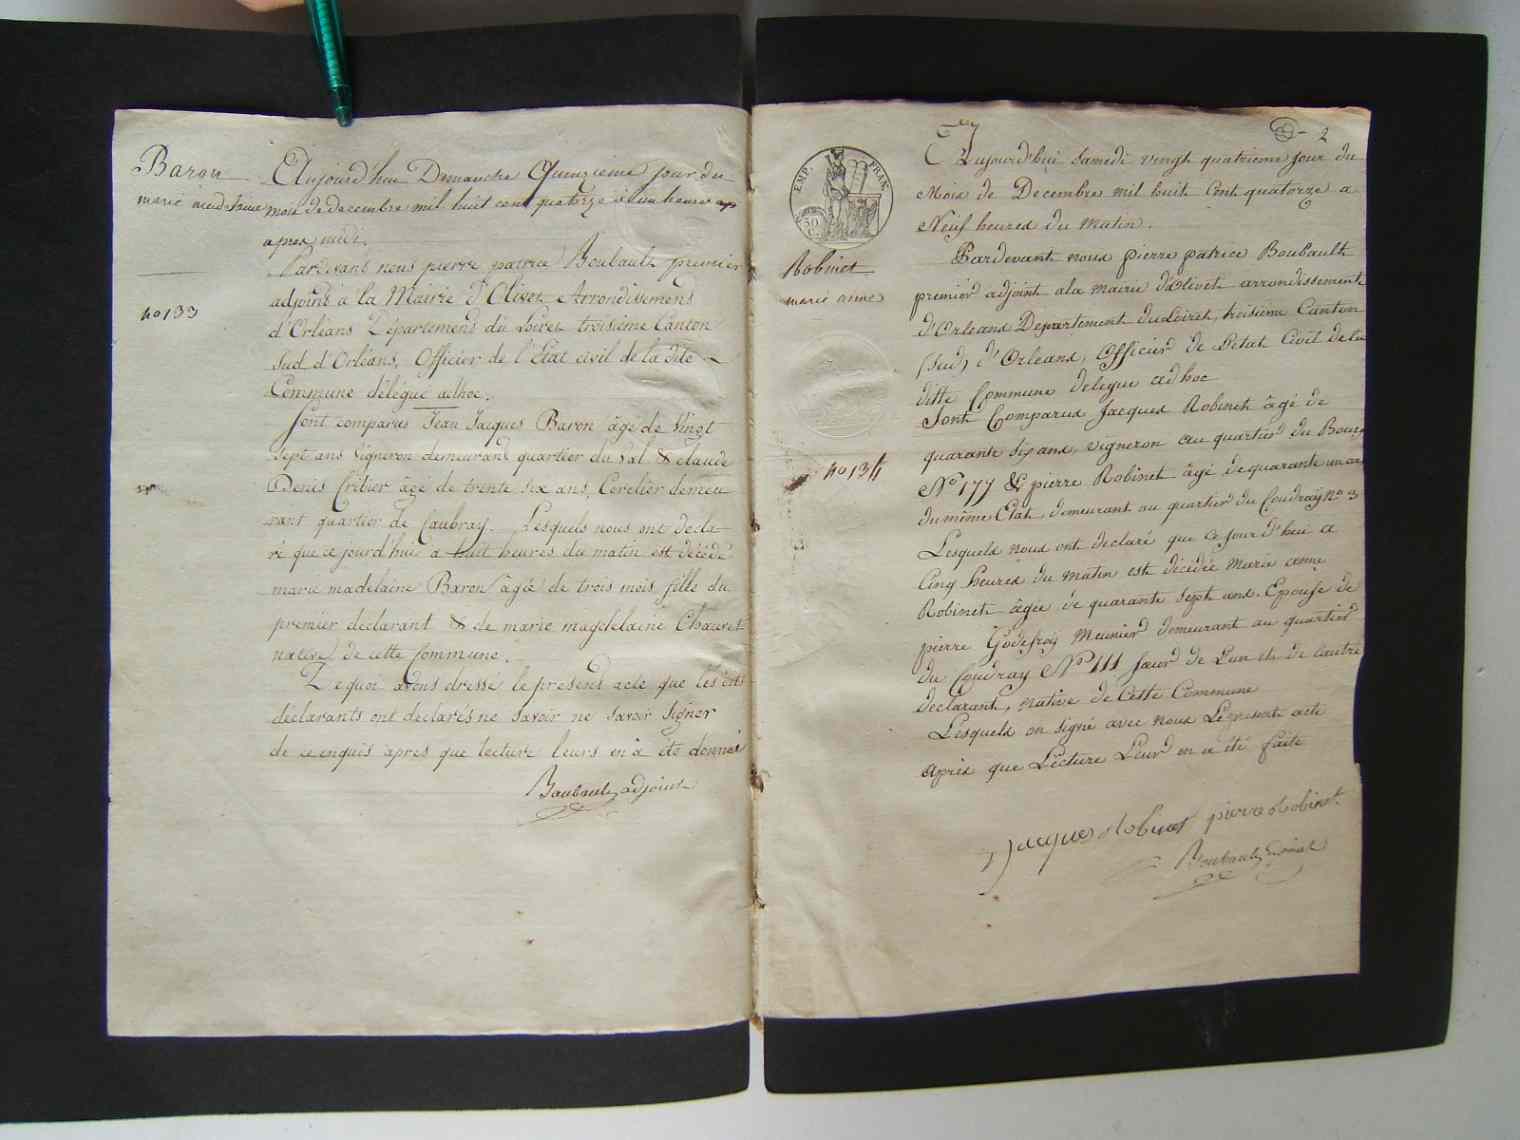 Baron
marie madelaine
no 133
Aujourd'hui Dimanche Quinzieme jour du
mois de decembre mil huit cent quatorze à une heure ap
apres midi.
Pardevant nous pierre patrice Boubault premier
adjoint à la Mairie d'Olivet Arrondissement
d'Orléans Département du Loiret troisieme Canton
Sud d'Orléans, Officier de l'Etat civil de la dite
Commune délégué adhoc.
Sont comparus Jean Jacques Baron âgé de Vingt
sept ans Vigneron demeurant quartier du Val & claude
Denis Cribier âgé de trente six ans, Cerclier demeu
rant quartier de Caubray. Lesquels nous ont decla
ré que ce jourd'hui a huit heures du matin est décédé
marie madelaine Baron âgée de trois mois fille du
premier déclarant & de marie magdelaine Chauvet
native de cette Commune.
De quoi avons dressé le présent acte que les dits
déclarants ont déclarés ne Savoir ne Savoir Signer
de ce enquis après que lecture leurs en a été donnée
Boubault adjoint
2
EMP. FRAN.
50 C
Robinet
marie anne
no 134
Aujourd'hui Samedi vingt quatrieme jour du
Mois de Decembre mil huit Cent quatorze a
Neuf heures du Matin.
Pardevant nous pierre patrice Boubault
premier adjoint ala mairie d'Olivet arrondissement
d'Orleans Departement du Loiret, troisieme Canton
(Sud) d'Orleans, Officier de l'etat Civil de la
ditte Commune delegue ad hoc
Sont Comparus Jacques Robinet âgé de
quarante six ans, vigneron au quartier du Bourg
No 177 & pierre Robinet âgé de quarante un an
du même Etat, demeurant au quartier du Coudray no 3
Lesquels nous ont declaré que ce jour d'hui a
Cinq heures du matin est décédée Marie anne
Robinet âgée de quarante sept ans. Epouse de
pierre Godefroy Meunier demeurant au quartier
du Coudray No 111 Soeur de l'un et de l'autre
declarant, native de Cette Commune
Lesquels on signé avec nous Le present acte
après que Lecture Leur en a été faite
Jacques Robinet pierre Robinet
Boubault adjoint